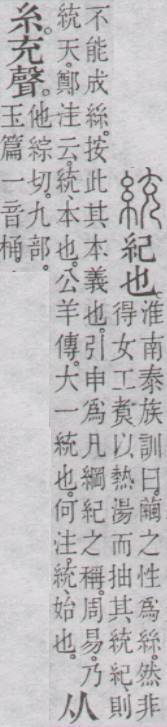 統 紀也。淮南泰族訓曰。繭之性爲絲。然非
得女工煑以熱湯而抽其統紀。則
不能成絲。按此其本義也。引申爲凡綱紀之稱。周易。乃
統天。鄭注云。統、本也。公羊傳。大一統也。何注。統、始也。从
糸。充聲。他綜切。九部。
玉篇一音桶。